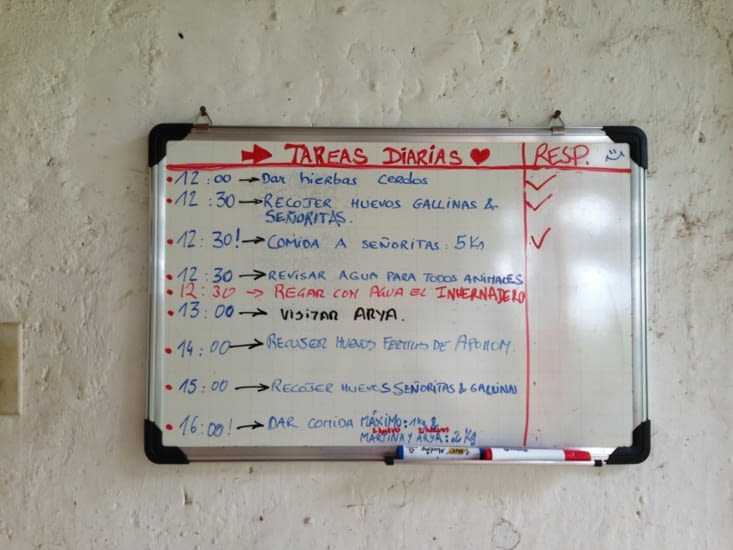 TAREAS DIARIAS ♥ RESP.
12:00 → Dar hierbas cerdos
12:30 → RECOJER HUEVOS GALLINAS &
SEÑORITAS.
12:30! → COMIDA A SEÑORITAS: 5Kg
12:30 → REVISAR AGUA PARA TODOS ANIMALES
12:30 → REGAR CON AGUA EL INVERNADERO
13:00 → VISITAR ARYA.
14:00 → RECOJER HUEVOS FERTILES DE
15:00 → RECOJER HUEVOS SEÑORITAS & GALLINAS
16:00! → DAR COMIDA MÁXIMO: 1kg &
MARTINA Y ARYA: 2Kg